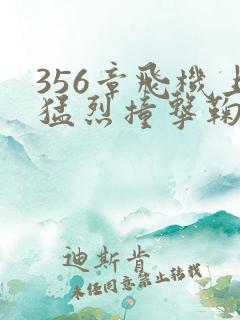 356章飛機上
猛烈撞擊鞠
迪斯肯
未经同意禁止转载